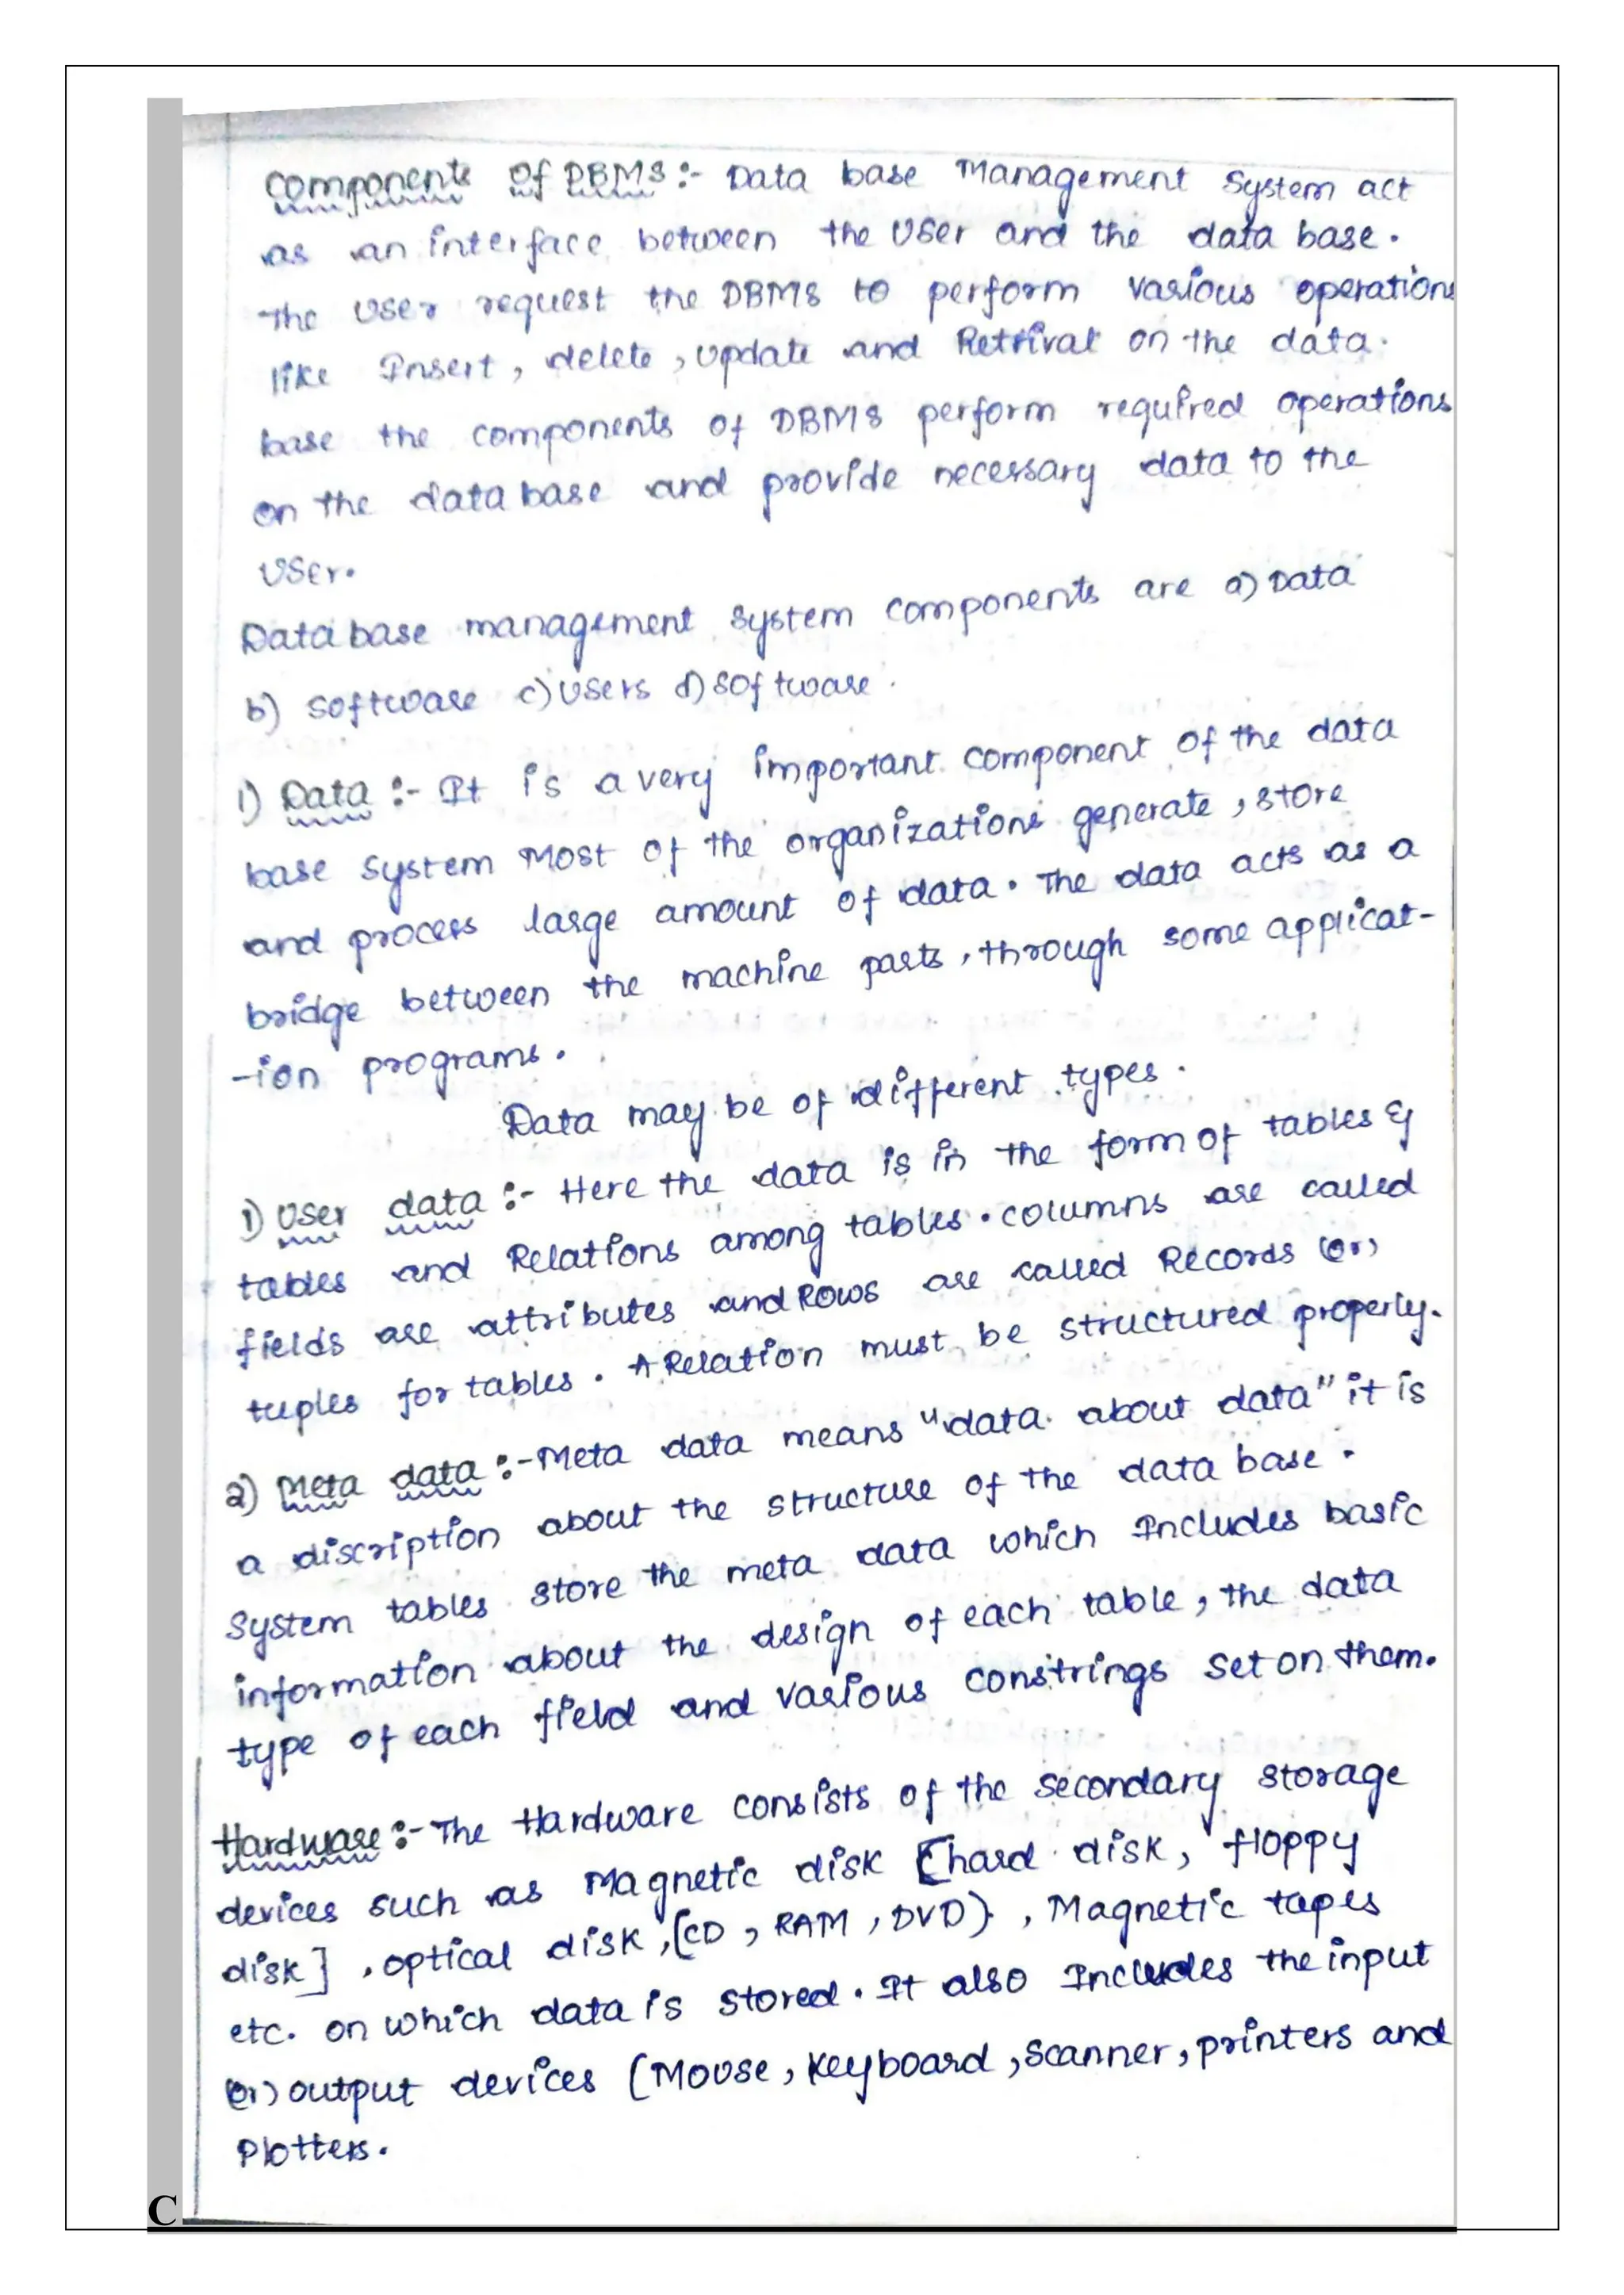 Components Of DBMS :- Data base Management System act
as an interface between the User and the data base.
The User request the DBMS to perform various operations
like Insert, delete, Update and Retrival on the data.
base the components of DBMS perform required operations
on the data base and provide necessary data to the
User.
Data base management system components are a) Data
b) software c) Users d) software.
1) Data :- It is a very important component of the data
base system Most of the organizations generate, store
and process large amount of data. The data acts as a
bridge between the machine parts, through some applicat-
-ion programs.
Data may be of different types.
1) User data :- Here the data is in the form of tables &
tables and Relations among tables. columns are called
fields are attributes and Rows are called Records (or)
tuples for tables. A Relation must be structured properly.
2) Meta data :- Meta data means "data about data" it is
a discription about the structure of the data base.
System tables store the meta data which Includes basic
information about the design of each table, the data
type of each field and various constrings set on them.
Hardware :- The Hardware consists of the secondary storage
devices such as Magnetic disk [hard disk, floppy
disk], optical disk, [CD, RAM, DVD}, Magnetic tapes
etc. on which data is stored. It also Includes the input
(or) output devices (Mouse, Keyboard, Scanner, printers and
Plotters.
C